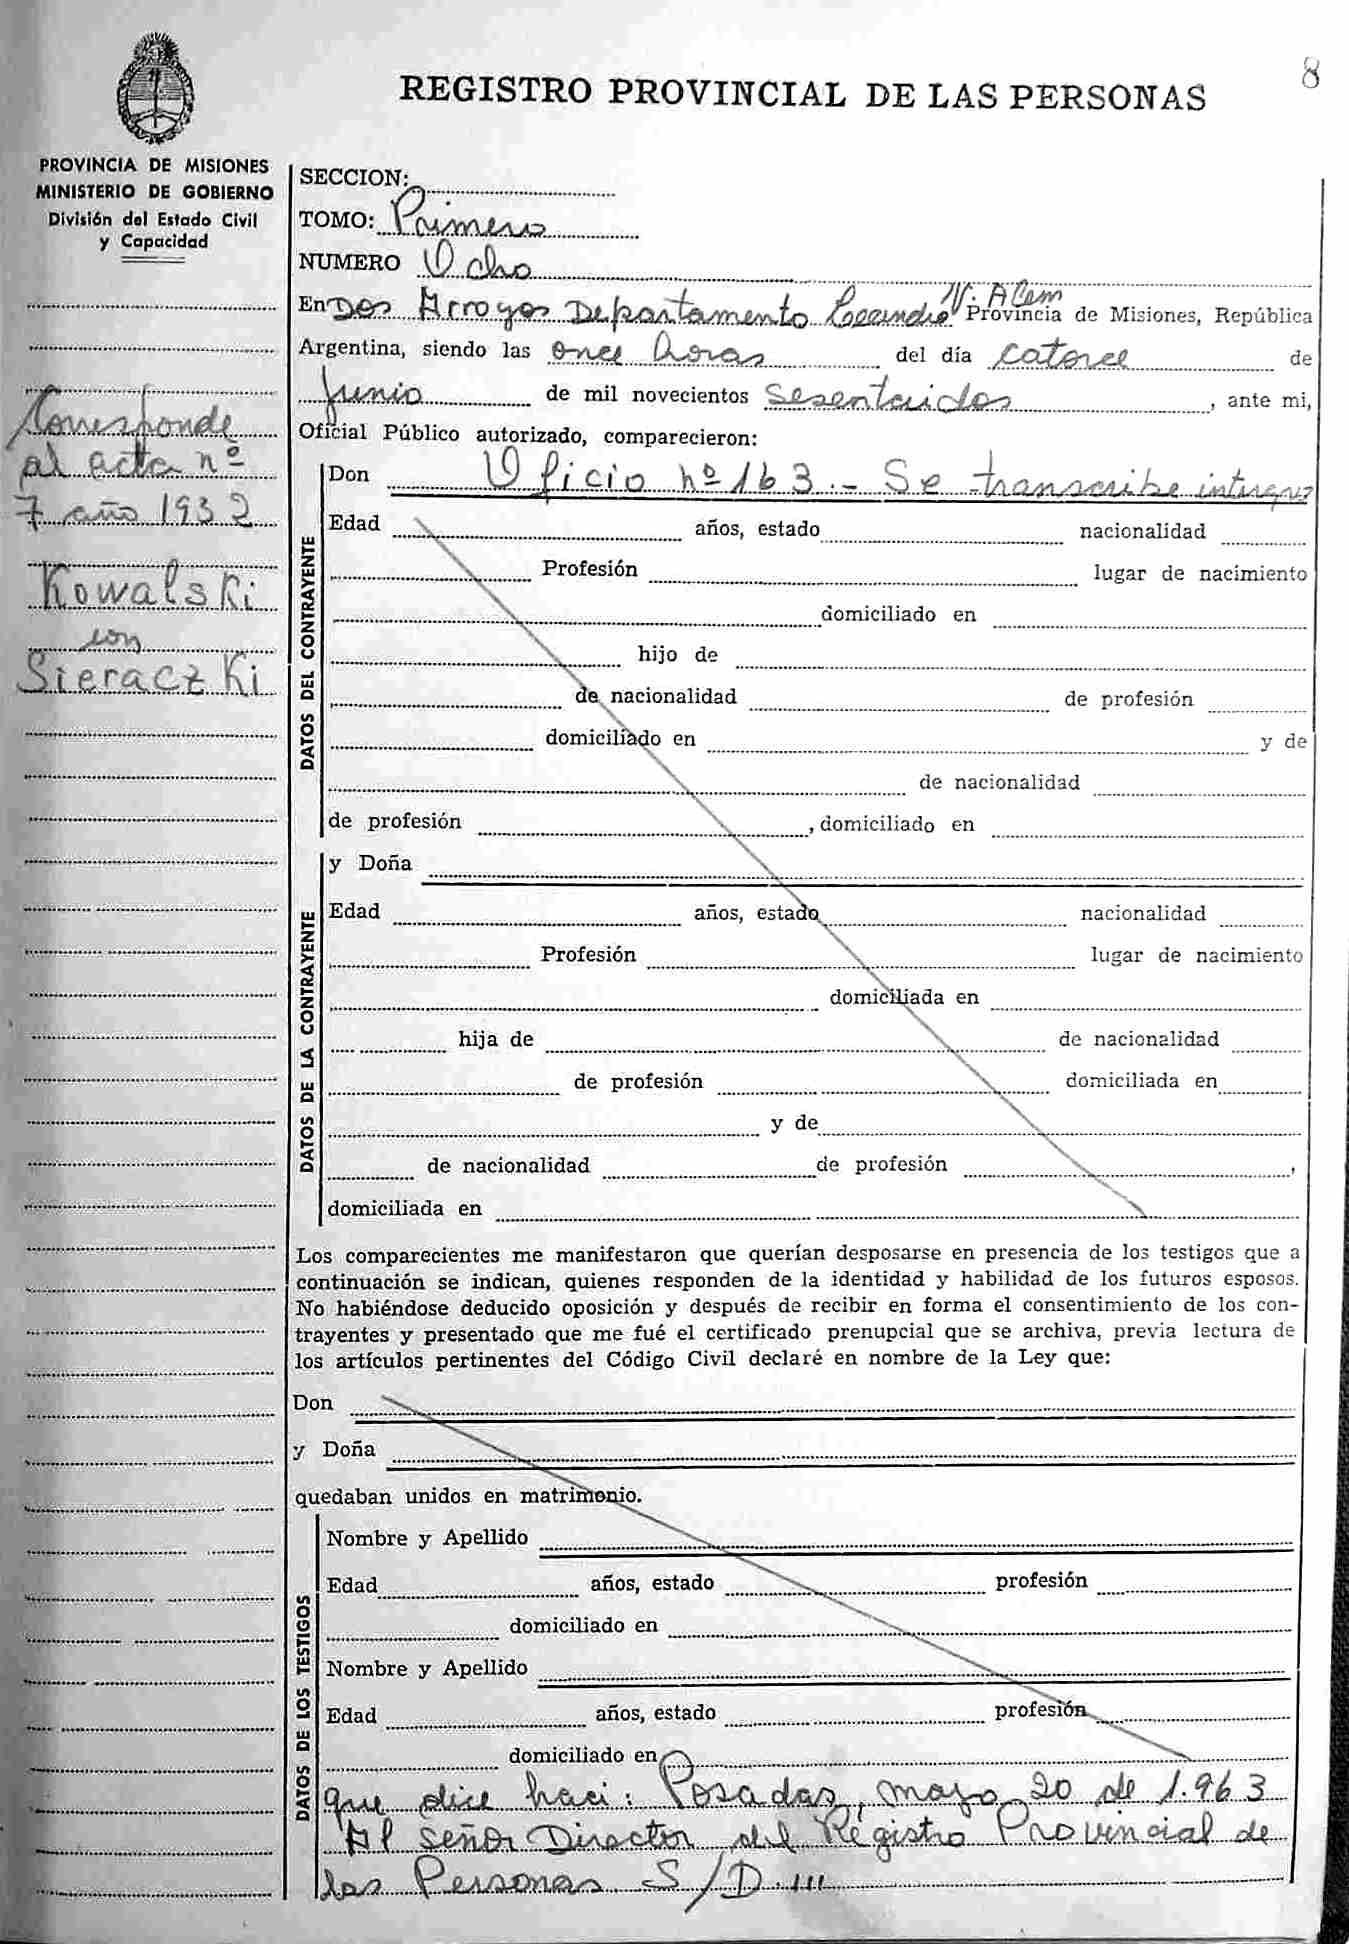 8
REGISTRO PROVINCIAL DE LAS PERSONAS
PROVINCIA DE MISIONES
MINISTERIO DE GOBIERNO
División del Estado Civil
y Capacidad
Corresponde
al acta nº
7 año 1932
Kowalski
con
Sieraczki
SECCION:
TOMO: Primero
NUMERO Ocho
En Dos Arroyos Departamento Leandro N. Alem Provincia de Misiones, República
Argentina, siendo las once horas del día catorce de
Junio de mil novecientos sesentaidos, ante mi,
Oficial Público autorizado, comparecieron:
DATOS DEL CONTRAYENTE
Don Oficio nº 163.- Se transcribe
Edad años, estado nacionalidad
Profesión lugar de nacimiento
domiciliado en
hijo de
de nacionalidad de profesión
domiciliado en y de
de nacionalidad
de profesión , domiciliado en
DATOS DE LA CONTRAYENTE
y Doña
Edad años, estado nacionalidad
Profesión lugar de nacimiento
domiciliada en
hija de de nacionalidad
de profesión domiciliada en
y de
de nacionalidad de profesión ,
domiciliada en
Los comparecientes me manifestaron que querían desposarse en presencia de los testigos que a
continuación se indican, quienes responden de la identidad y habilidad de los futuros esposos.
No habiéndose deducido oposición y después de recibir en forma el consentimiento de los con-
trayentes y presentado que me fué el certificado prenupcial que se archiva, previa lectura de
los artículos pertinentes del Código Civil declaré en nombre de la Ley que:
Don
y Doña
quedaban unidos en matrimonio.
DATOS DE LOS TESTIGOS
Nombre y Apellido
Edad años, estado profesión
domiciliado en
Nombre y Apellido
Edad años, estado profesión
domiciliado en
que dice haci: Posadas, mayo 20 de 1.963
Al Señor Director del Régistro Provincial de
las Personas S/D.